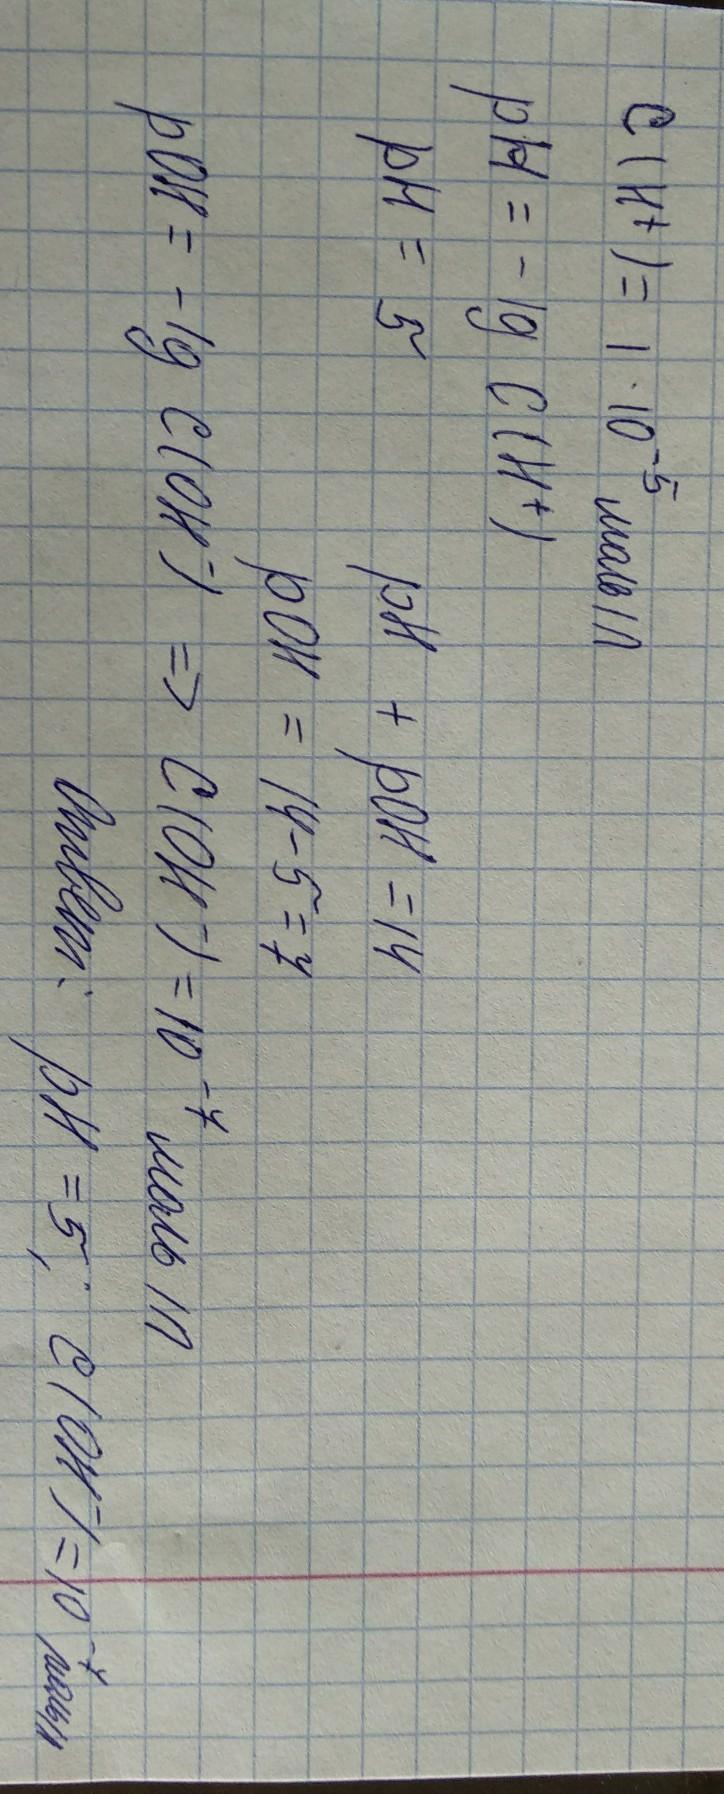 C(H+) = 1 · 10⁻⁵ моль/л
pH = -lg C(H+)
pH = 5
pH + pOH = 14
pOH = 14-5=7
pOH = -lg C(OH⁻) => C(OH⁻) = 10⁻⁷ моль/л
Ответ: pH = 5; C(OH⁻) = 10⁻⁷ моль/л